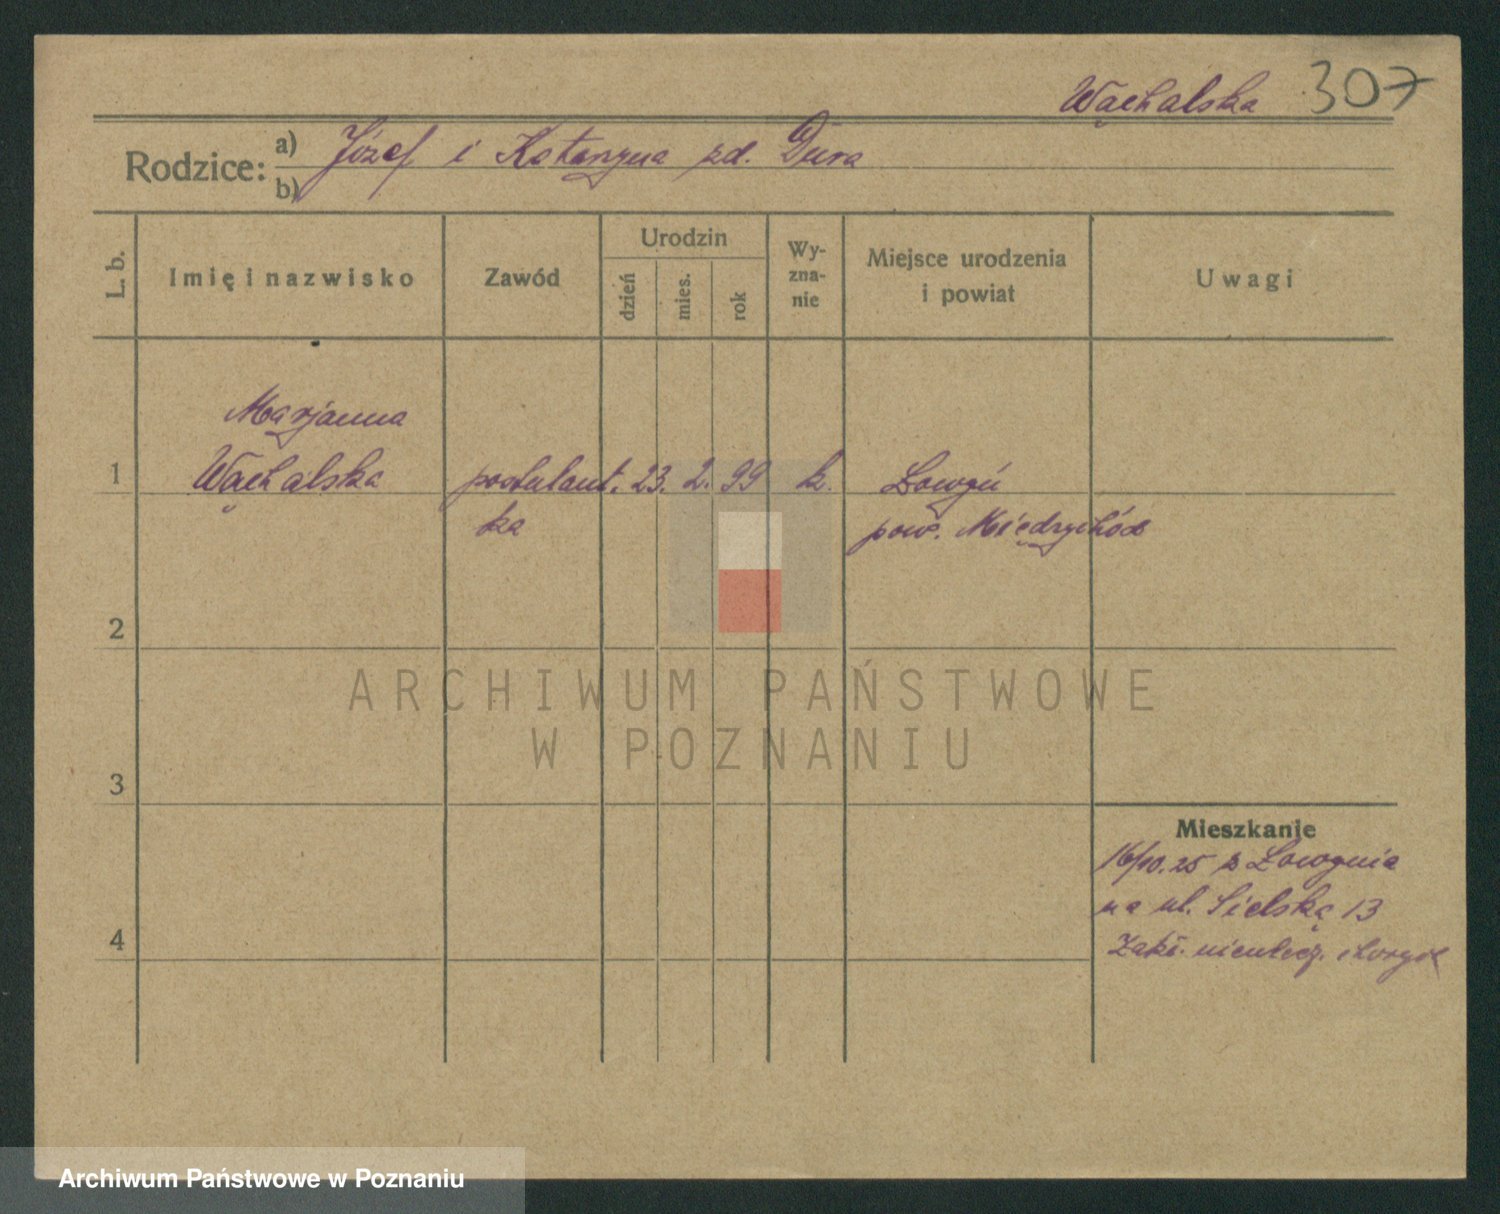 Wąchalska 307
Rodzice: a) Józef i Katarzyna zd. Dura
b)
L. b. Imię i nazwisko Zawód Urodzin dzień mies. rok Wy-zna-nie Miejsce urodzenia i powiat Uwagi
Marjanna
1 Wąchalska postulant. 23. 2. 99 k. Łowyń
ka pow. Międzychód
2
3
Mieszkanie
16/10.25 z Łowynia
na ul. Sielską 13
4 Zakł. nieulecz. chorych
ARCHIWUM PAŃSTWOWE
W POZNANIU
Archiwum Państwowe w Poznaniu